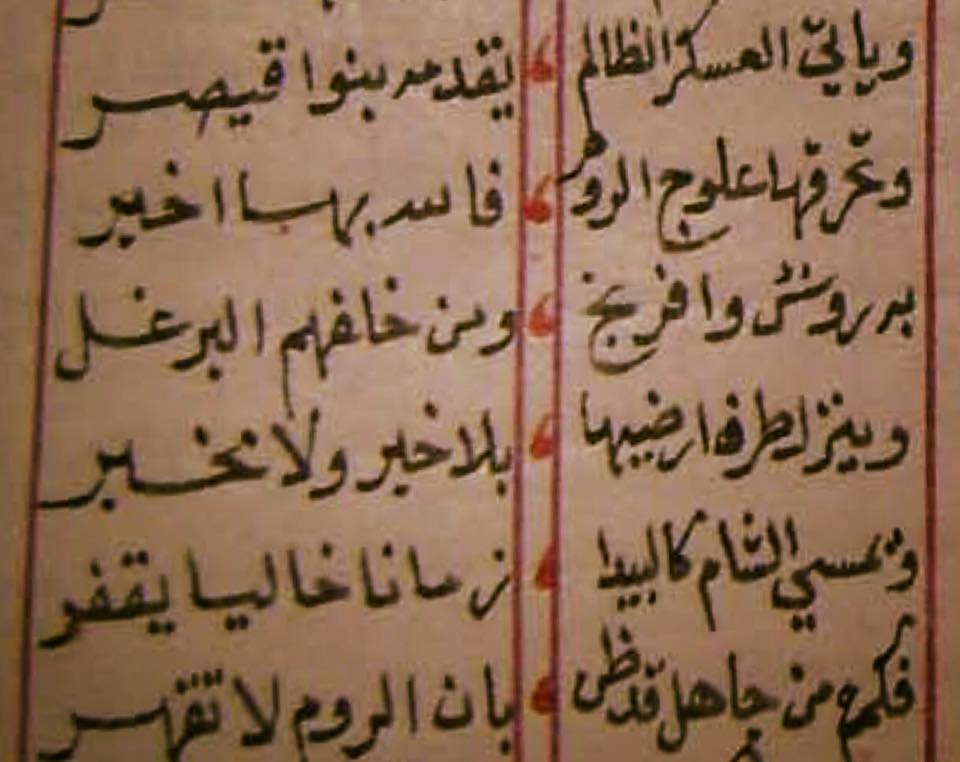 وياتيّ العسكر الظالم ، يقدمه بنوا قيصر
وتحرقها علوج الروم ، بها
وافرنج ، ومن خلفهم البرغل
وينزل ارضيها ، بلا خبر ولا مخبر
وتمسي الشام كالبيدا ، زمانا خاليا يقفر
فكم من جاهل قد ظن ، بان الروم لا تقهر